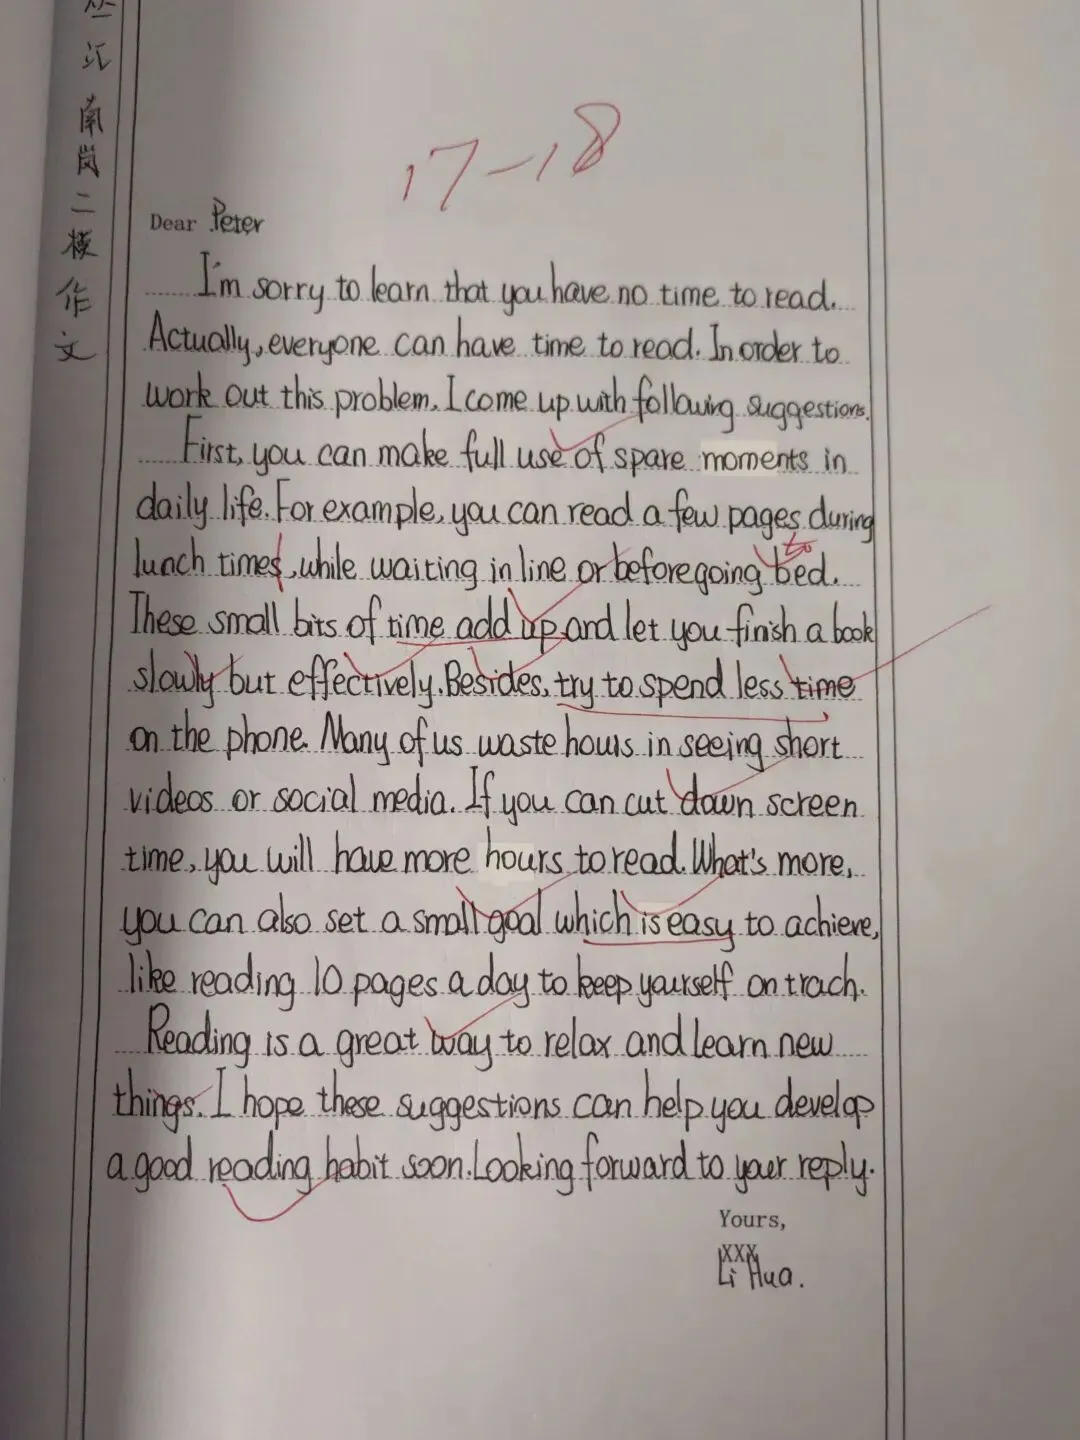 江
南
岗
二
模
作
文
17-18
Dear Peter
I'm sorry to learn that you have no time to read.
Actually, everyone can have time to read. In order to
work out this problem, I come up with following suggestions.
First, you can make full use of spare moments in
daily life. For example, you can read a few pages during
lunch times, while waiting in line or before going bed.
to
These small bits of time add up and let you finish a book
slowly but effectively. Besides, try to spend less time
on the phone. Many of us waste hours in seeing short
videos or social media. If you can cut down screen
time, you will have more hours to read. What's more,
you can also set a small goal which is easy to achieve,
like reading 10 pages a day to keep yourself on trach.
Reading is a great way to relax and learn new
things. I hope these suggestions can help you develop
a good reading habit soon. Looking forward to your reply.
Yours,
XXX
Li Hua.